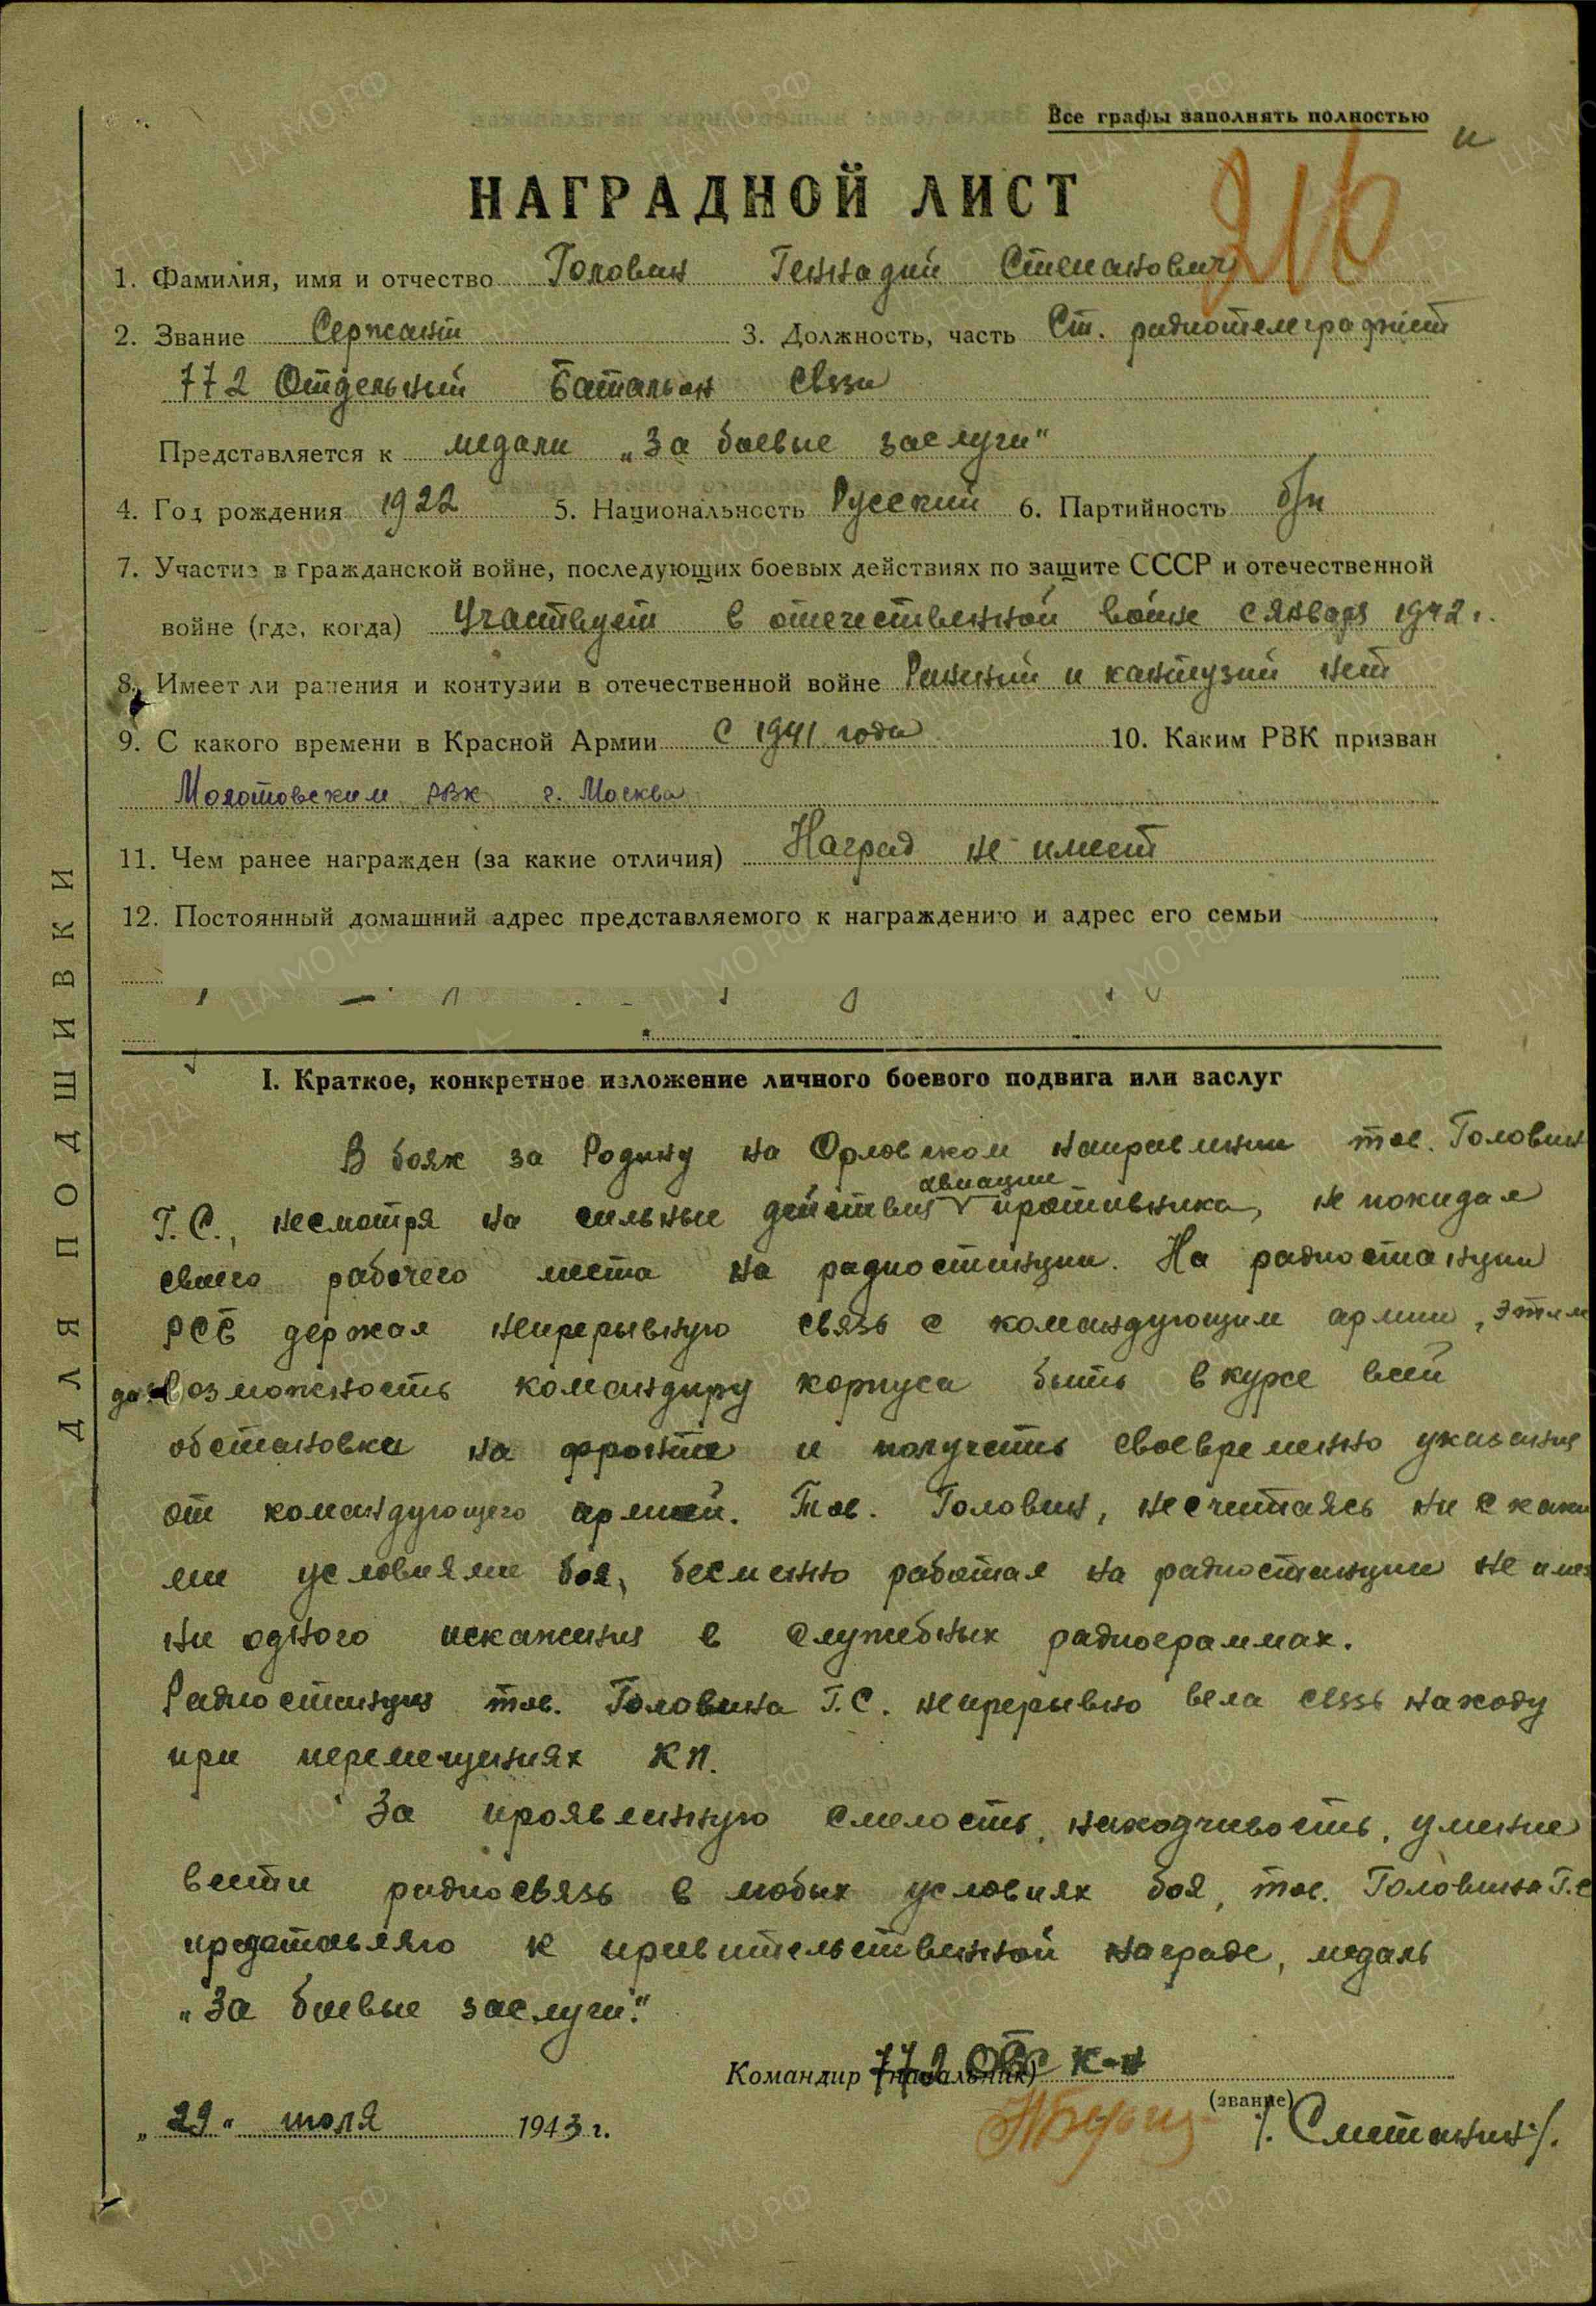 Все графы заполнять полностью
и
216
НАГРАДНОЙ ЛИСТ
1. Фамилия, имя и отчество Головин Геннадий Степанович
2. Звание Сержант 3. Должность, часть Ст. радиотелеграфист
772 Отдельный Батальон Связи
Представляется к медали „За боевые заслуги"
4. Год рождения 1922 5. Национальность Русский 6. Партийность б/п
7. Участие в гражданской войне, последующих боевых действиях по защите СССР и отечественной
войне (где, когда) Участвует в отечественной войне с января 1942 г.
8. Имеет ли ранения и контузии в отечественной войне Ранений и контузий нет
9. С какого времени в Красной Армии С 1941 года 10. Каким РВК призван
Молотовским РВК г. Москва
11. Чем ранее награжден (за какие отличия) Наград не имеет
12. Постоянный домашний адрес представляемого к награждению и адрес его семьи
ДЛЯ ПОДШИВКИ
I. Краткое, конкретное изложение личного боевого подвига или заслуг
В боях за Родину на Орловском направлении тов. Головин
авиации
Г.С., несмотря на сильные действия противника, не покидал
своего рабочего места на радиостанции. На радиостанции
РСБ держал непрерывную связь с командующим армии, этим
дал возможность командиру корпуса быть в курсе всей
обстановки на фронте и получать своевременно указания
от командующего армией. Тов. Головин, несчитаясь ни с каки
ми условиями боя, бесменно работая на радиостанции не имел
ни одного искажения в служебных радиограммах.
Радиостанция тов. Головина Г.С. непрерывно вела связь находу
при перемещениях КП.
За проявленную смелость, находчивость, умение
вести радиосвязь в любых условиях боя, тов. Головина Г.С
представляю к правительственной награде, медаль
„За боевые заслуги".
Командир (начальник) 772 ОБС к-н
(звание)
„29" июля 1943 г. /. Сметанин/.